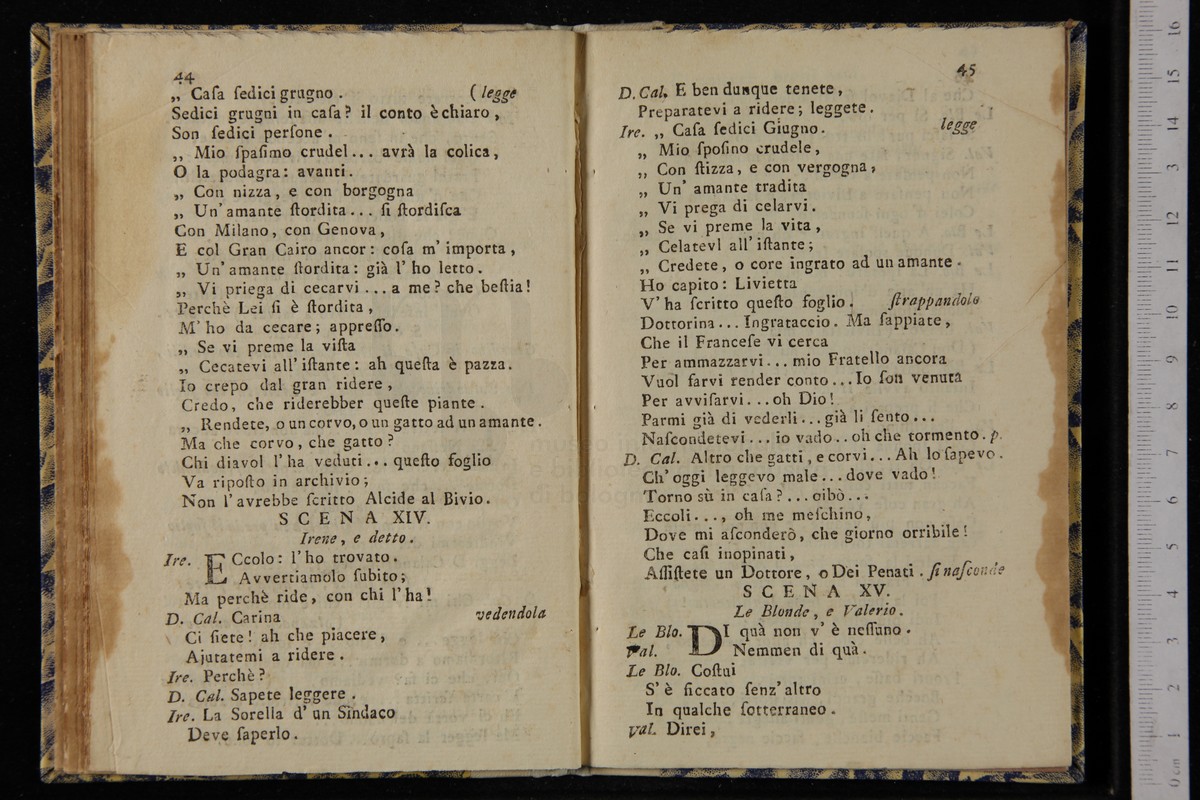 44
„ Caſa ſedici grugno . ( legge
Sedici grugni in caſa? il conto è chiaro ,
Son ſedici perſone .
„ Mio ſpaſimo crudel... avrà la colica,
O la podagra: avanti.
„ Con nizza, e con borgogna
„ Un' amante ſtordita... ſi ſtordiſca
Con Milano, con Genova,
E col Gran Cairo ancor: coſa m' importa,
„ Un' amante ſtordita: già l' ho letto.
„ Vi priega di cecarvi ... a me? che beſtia!
Perchè Lei ſi è ſtordita,
M' ho da cecare; appreſſo.
„ Se vi preme la viſta
„ Cecatevi all' iſtante: ah queſta è pazza.
Io crepo dal gran ridere,
Credo, che riderebber queſte piante.
„ Rendete, o un corvo, o un gatto ad un amante.
Ma che corvo, che gatto?
Chi diavol l' ha veduti... queſto foglio
Va ripoſto in archivio;
Non l' avrebbe ſcritto Alcide al Bivio.
SCENA XIV.
Irene, e detto.
Ire. ECcolo: l' ho trovato.
Avvertiamolo ſubito;
Ma perchè ride, con chi l' ha!
D. Cal. Carina vedendola
Ci ſiete! ah che piacere,
Ajutatemi a ridere.
Ire. Perchè?
D. Cal. Sapete leggere.
Ire. La Sorella d' un Sindaco
Deve ſaperlo.
45
D. Cal. E ben dunque tenete,
Preparatevi a ridere; leggete.
Ire. „ Caſa ſedici Giugno. legge
„ Mio ſpoſino crudele,
„ Con ſtizza, e con vergogna,
„ Un' amante tradita
„ Vi prega di celarvi.
„ Se vi preme la vita,
„ Celatevl all' iſtante;
„ Credete, o core ingrato ad un amante.
Ho capito: Livietta
V' ha ſcritto queſto foglio. ſtrappandolo
Dottorina... Ingrataccio. Ma ſappiate,
Che il Franceſe vi cerca
Per ammazzarvi... mio Fratello ancora
Vuol farvi render conto... Io ſon venuta
Per avviſarvi... oh Dio!
Parmi già di vederli... già li ſento...
Naſcondetevi... io vado.. oh che tormento. p.
D. Cal. Altro che gatti, e corvi... Ah lo ſapevo.
Ch' oggi leggevo male... dove vado!
Torno sù in caſa?... oibò...
Eccoli..., oh me meſchino,
Dove mi aſconderò, che giorno orribile!
Che caſi inopinati,
Aſſiſtete un Dottore, o Dei Penati. ſi naſconde
SCENA XV.
Le Blonde, e Valerio.
Le Blo. DI quà non v' è neſſuno.
Val. Nemmen di quà.
Le Blo. Coſtui
S' è ficcato ſenz' altro
In qualche ſotterraneo.
Val. Direi,